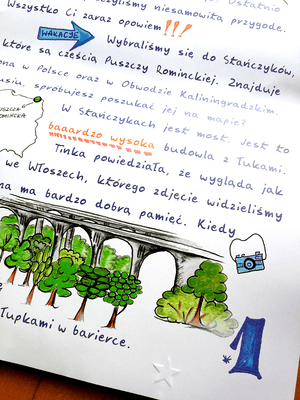 niesamowitą przygodę.
Wszystko Ci zaraz opowiem!!!
WAKACJE
Wybraliśmy się do Stańczyków,
które są częścią Puszczy Rominckiej. Znajduje
w Polsce oraz w Obwodzie Kaliningradzkim.
spróbujesz poszukać jej na mapie?
PUSZCZA
ROMINCKA
W Stańczykach jest most. Jest to
baaardzo wysoka budowla z łukami.
Tinka powiedziała, że wygląda jak
we Włoszech, którego zdjęcie widzieliśmy
ma bardzo dobrą pamięć. Kiedy
łupkami w barierce.
*1